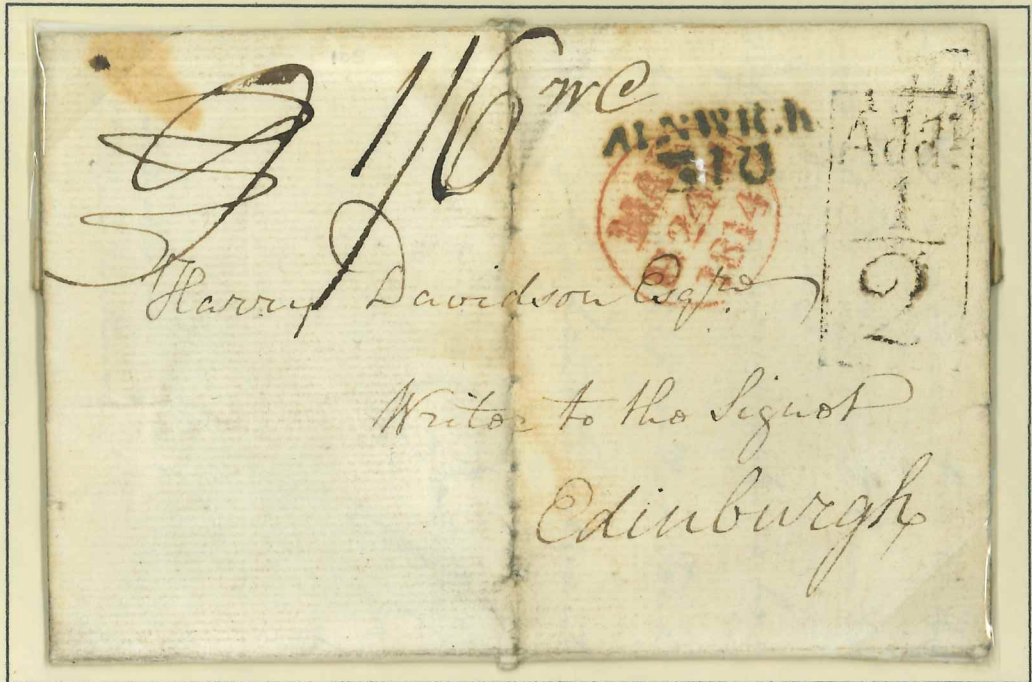 1/6
ALNWICK
310
MAR
24
1814
Addl
1
2
Harry Davidson Esqre
Writer to the Signet
Edinburgh